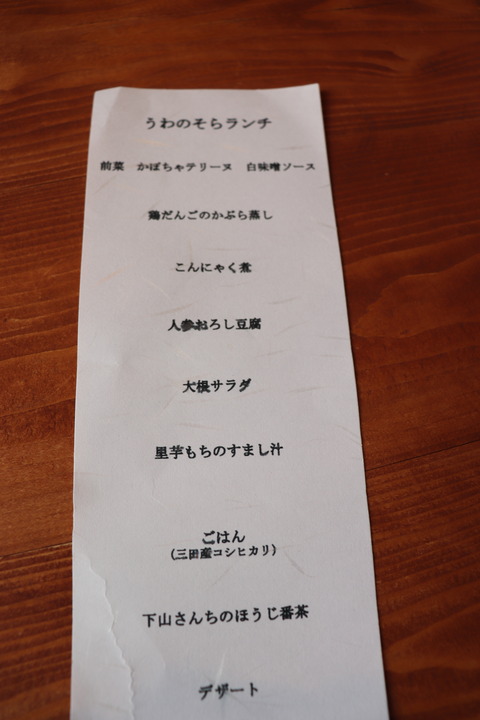 うわのそらランチ
前菜　かぼちゃテリーヌ　白味噌ソース
鶏だんごのかぶら蒸し
こんにゃく煮
人参おろし豆腐
大根サラダ
里芋もちのすまし汁
ごはん
（三田産コシヒカリ）
下山さんちのほうじ番茶
デザート